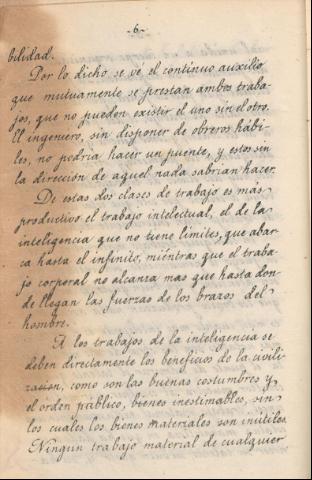 -6-
bilidad.
Por lo dicho se vé el contínuo auxilio
que mutuamente se prestan ambos traba-
jos, que no pueden existir el uno sin el otro.
El ingeniero, sin disponer de obreros hábi-
les, no podria hacer un puente, y estos sin
la dirección de aquel nada sabrían hacer.
De estas dos clases de trabajo es más
productivo el trabajo intelectual, el de la
inteligencia que no tiene límites, que abar-
ca hasta el infinito, miéntras que el traba-
jo corporal no alcanza mas que hasta don-
de llegan las fuerzas de los brazos del
hombre.
Á los trabajos de la inteligencia se
deben directamente los beneficios de la civili-
zacion, como son las buenas costumbres y
el orden público, bienes inestimables, sin
los cuales los bienes materiales son inútiles.
Ningun trabajo material de cualquier